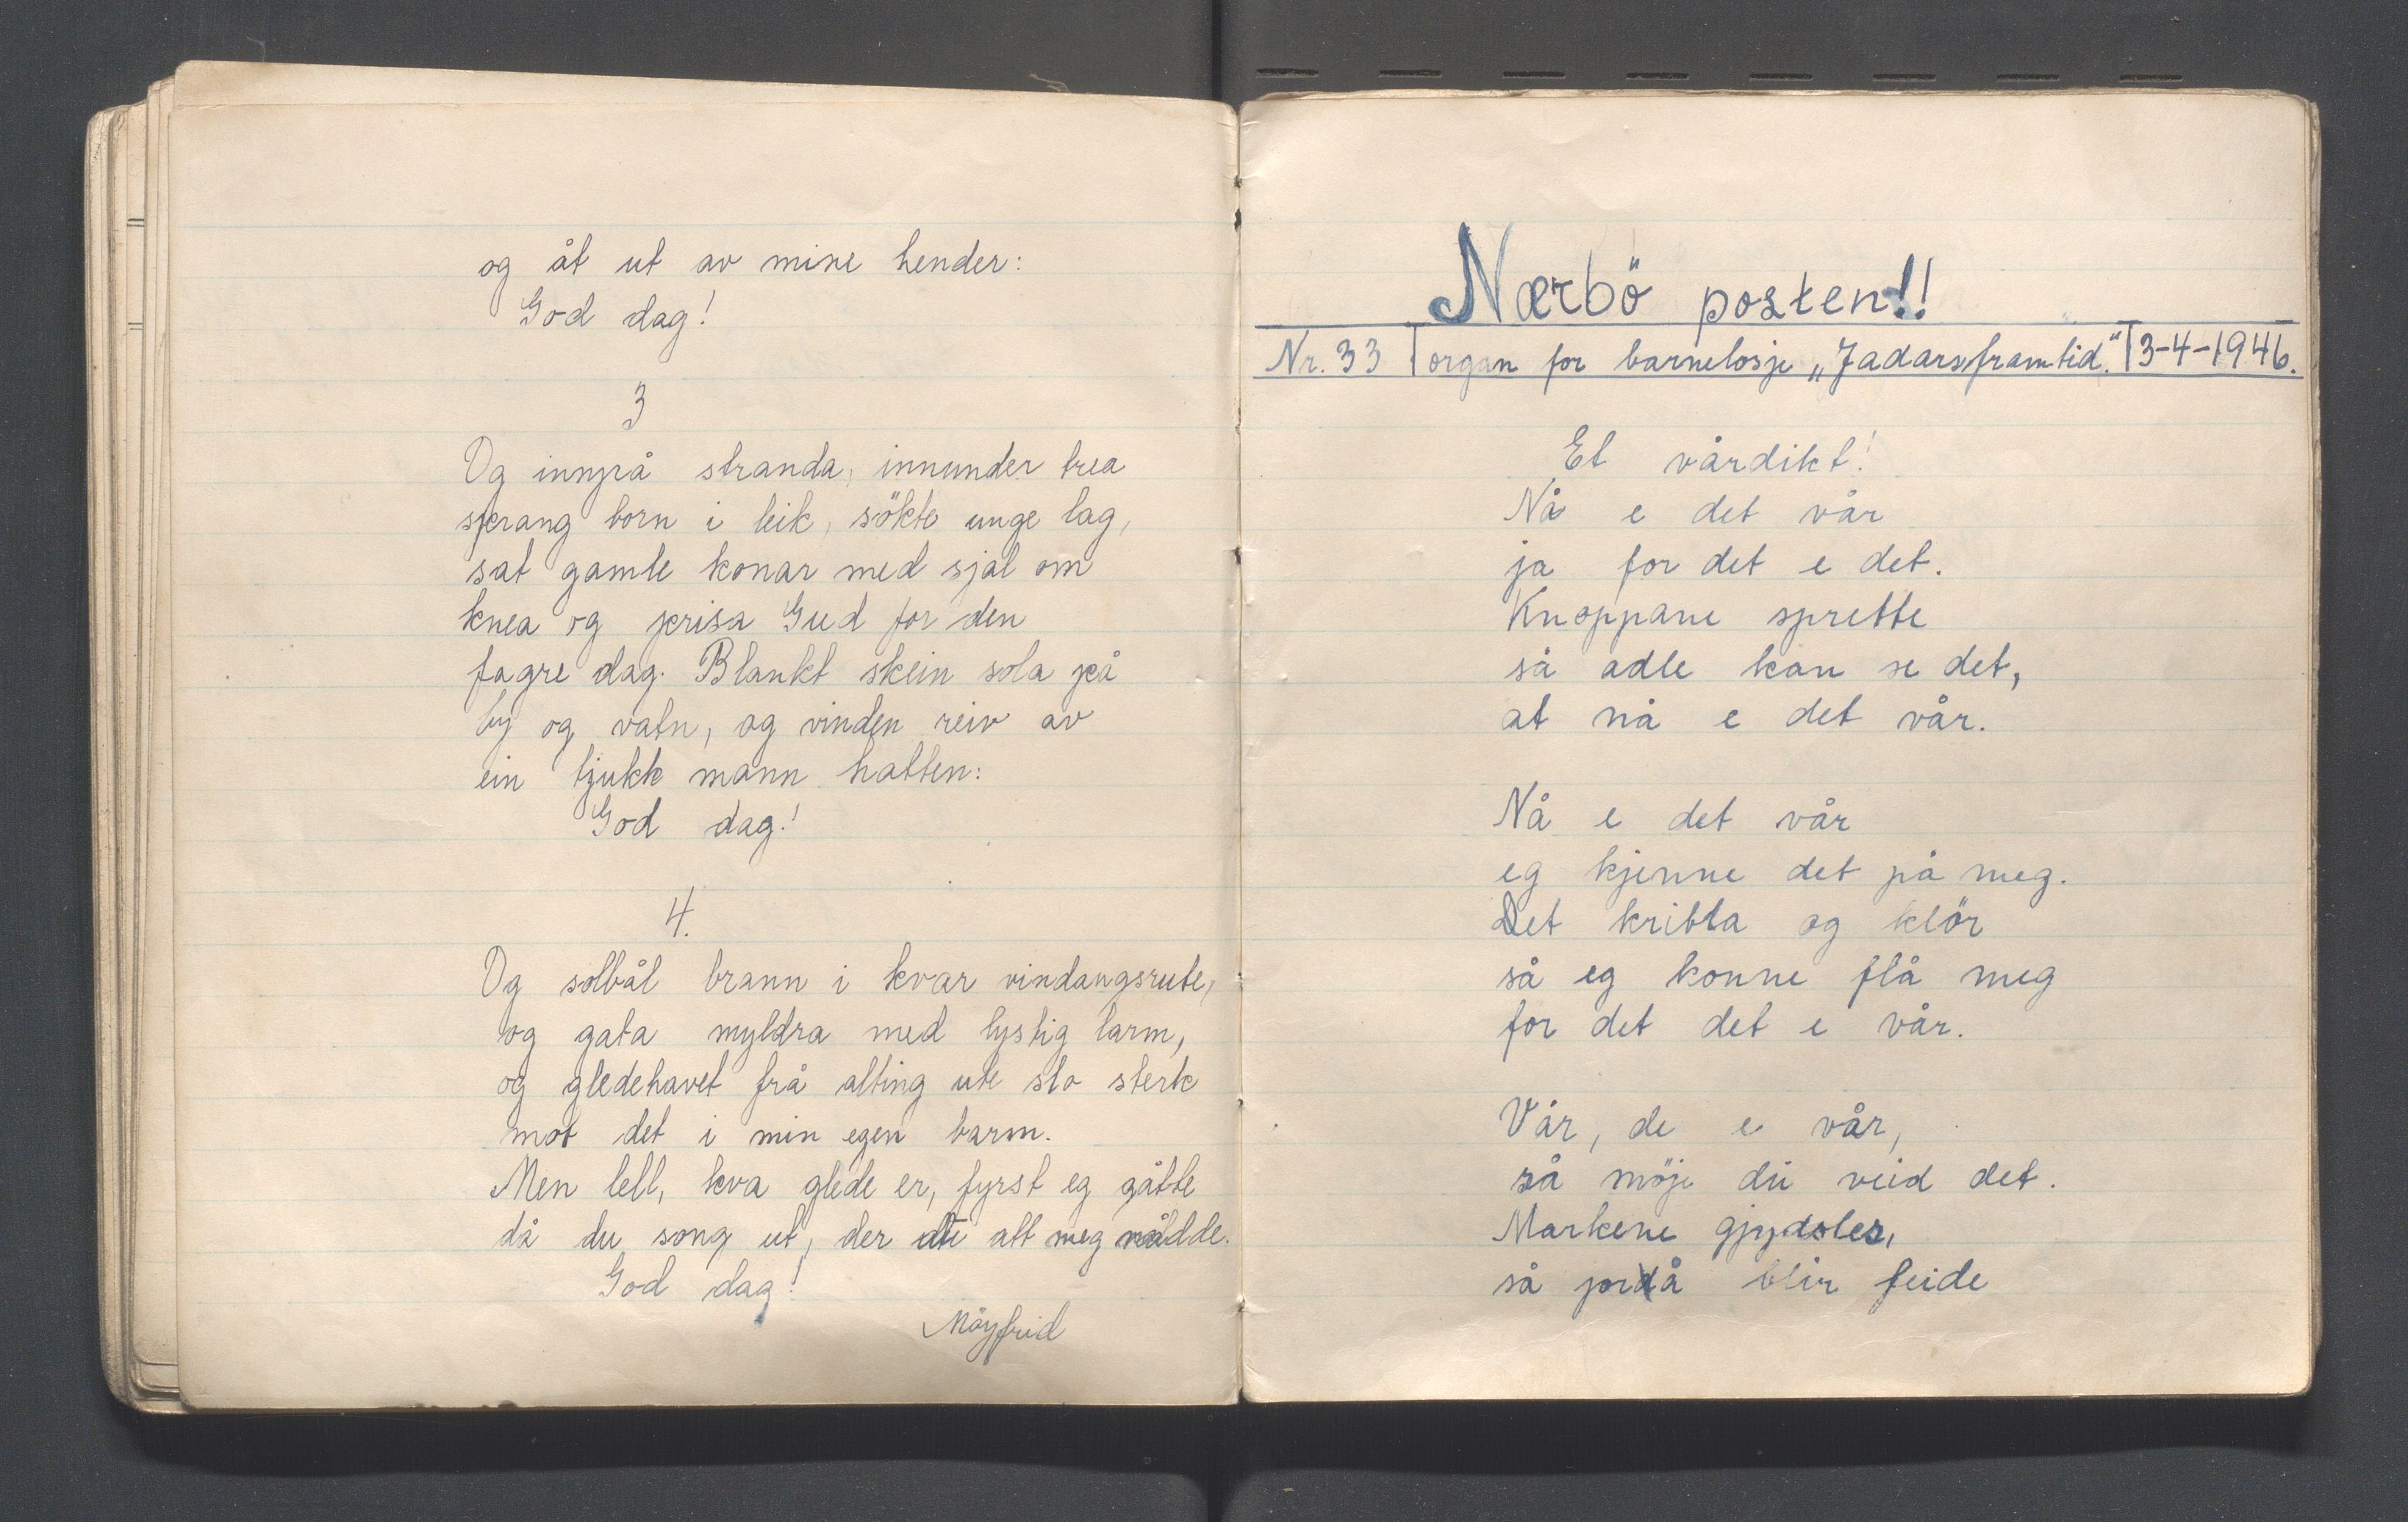 og åt ut av mine hender:
God dag!
3
Og innpå stranda, innunder trea
sprang born i leik, sökte unge lag,
sat gamle konar med sjal om
knea og prisa Gud for den
fagre dag. Blankt skein sola på
by og vatn, og vinden reiv av
ein tjukk mann hatten:
God dag!
4.
Og solbål brann i kvar vindaugsrute,
og gata myldra med lystig larm,
og gledehavet frå alting ute slo sterk
mot det i min egen barm.
Men lell, kva glede er, fyrst eg gåtte
då du song ut, der ute alt meg nådde.
God dag!
Möyfrid
Nærbö posten!!
Nr. 33 organ for barnelosje „Jadarsframtid." 13-4-1946.
Et vårdikt!
Nå e det vår
ja for det e det.
Knoppane sprette
så adle kan se det,
at nå e det vår.
Nå e det vår
eg kjenne det på meg.
Det kribla og klör
så eg konne flå meg
for det det e vår.
Vår, de e vår,
så möje du veid det.
Markene gjydsles,
så jordå blir feide